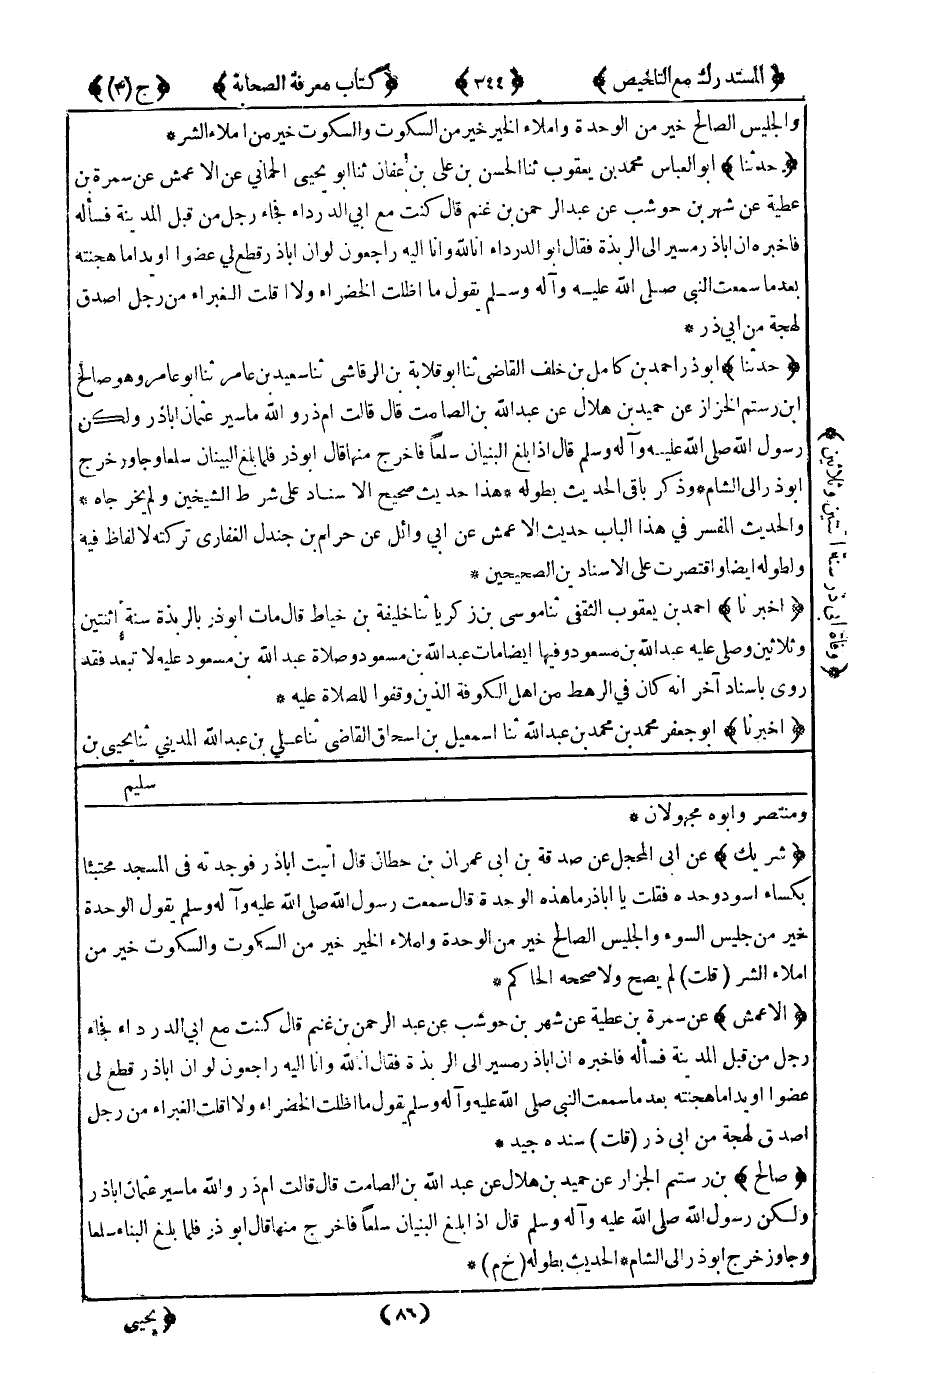 ﴿ المستدرك مع التلخيص ﴾ ﴿ ٣٤٤ ﴾ ﴿ كتاب معرفة الصحابة ﴾ ﴿ ج (٣) ﴾
والجليس الصالح خير من الوحدة واملاء الخير خير من السكوت والسكوت خير من املاء الشر *
﴿ حدثنا ﴾ ابو العباس محمد بن يعقوب ثنا الحسن بن علي بن عفان ثنا ابو يحيى الحماني عن الاعمش عن سمرة بن
عطية عن شهر بن حوشب عن عبد الرحمن بن غنم قال كنت مع ابي الدرداء فجاء رجل من قبل المدينة فسأله
فاخبره ان اباذر مسير الى الربذة فقال ابو الدرداء انا لله وانا اليه راجعون لو ان اباذر قطع لي عضوا او يدا ما هجنته
بعد ما سمعت النبي صلى الله عليه وآله وسلم يقول ما اظلت الخضراء ولا اقلت الغبراء من رجل اصدق
لهجة من ابي ذر *
﴿ حدثنا ﴾ ابو ذر احمد بن كامل بن خلف القاضي ثنا ابو قلابة بن الرقاشى ثنا سعيد بن عامر ثنا ابو عامر وهو صالح
ابن رستم الخزاز عن حميد بن هلال عن عبد الله بن الصامت قال قالت ام ذر والله ماسير عثمان اباذر ولكن
رسول الله صلى الله عليه وآله وسلم قال اذا بلغ البنيان سلعاً فاخرج منها قال ابو ذر فلما بلغ البينان سلعا وجاور خرج
ابو ذر الى الشام * وذكر باقى الحديث بطوله * هذا حديث صحيح الاسناد على شرط الشيخين ولم يخرجاه *
والحديث المفسر في هذا الباب حديث الاعمش عن ابي وائل عن حرام بن جندل الغفارى تركته لالفاظ فيه
ولطوله ايضا واقتصرت على الاسنادين الصحيحين *
﴿ اخبرنا ﴾ احمد بن يعقوب الثقفى ثنا موسى بن زكريا ثنا خليفة بن خياط قال مات ابوذر بالربذة سنة اثنتين
وثلاثين وصلى عليه عبد الله بن مسعود وفيها ايضا مات عبد الله بن مسعود وصلاة عبد الله بن مسعود عليه لا تبعد فقد
روى باسناد آخر انه كان في الرهط من اهل الكوفة الذين وقفوا للصلاة عليه *
﴿ اخبرنا ﴾ ابو جعفر محمد بن محمد بن عبد الله ثنا اسمعيل بن اسحاق القاضى ثنا علي بن عبد الله المديني ثنا يحيى بن
سليم
﴿ وفاة ابى ذر سنة اثنتين وثلاثين ﴾
ومنتصر وابوه مجهولان *
﴿ شريك ﴾ عن ابى المحجل عن صدقة بن ابى عمران بن حطان قال أتيت اباذر فوجدته فى المسجد محتبئا
بكساء اسود وحده فقلت يا اباذر ماهذه الوحدة قال سمعت رسول الله صلى الله عليه وآله وسلم يقول الوحدة
خير من جليس السوء والجليس الصالح خير من الوحدة واملاء الخير خير من السكوت والسكوت خير من
املاء الشر (قلت) لم يصح ولا صححه الحاكم *
﴿ الاعمش ﴾ عن سمرة بن عطية عن شهر بن حوشب عن عبد الرحمن بن غنيم قال كنت مع ابي الدرداء فجاء
رجل من قبل المدينة فسأله فاخبره ان اباذر مسير الى الربذة فقال انا لله وانا اليه راجعون لو ان اباذر قطع لى
عضوا او يدا ما هجنته بعد ما سمعت النبي صلى الله عليه وآله وسلم يقول ما اظلت الخضراء ولا اقلت الغبراء من رجل
اصدق لهجة من ابى ذر (قلت) سنده جيد *
﴿ صالح ﴾ بن رستم الجزار عن حميد بن هلال عن عبد الله بن الصامت قال قالت ام ذر والله ماسير عثمان اباذر
ولكن رسول الله صلى الله عليه وآله وسلم قال اذا بلغ البنيان سلعاً فاخرج منها قال ابو ذر فلما بلغ البناء سلعا
وجاوز خرج ابو ذر الى الشام * الحديث بطوله (خ م) *
(٨٦) ﴿ يحيى